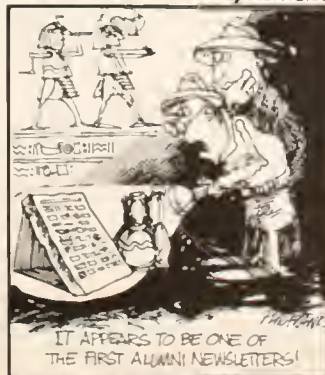 IT APPEARS TO BE ONE OF
THE FIRST ALUMNI NEWSLETTERS!